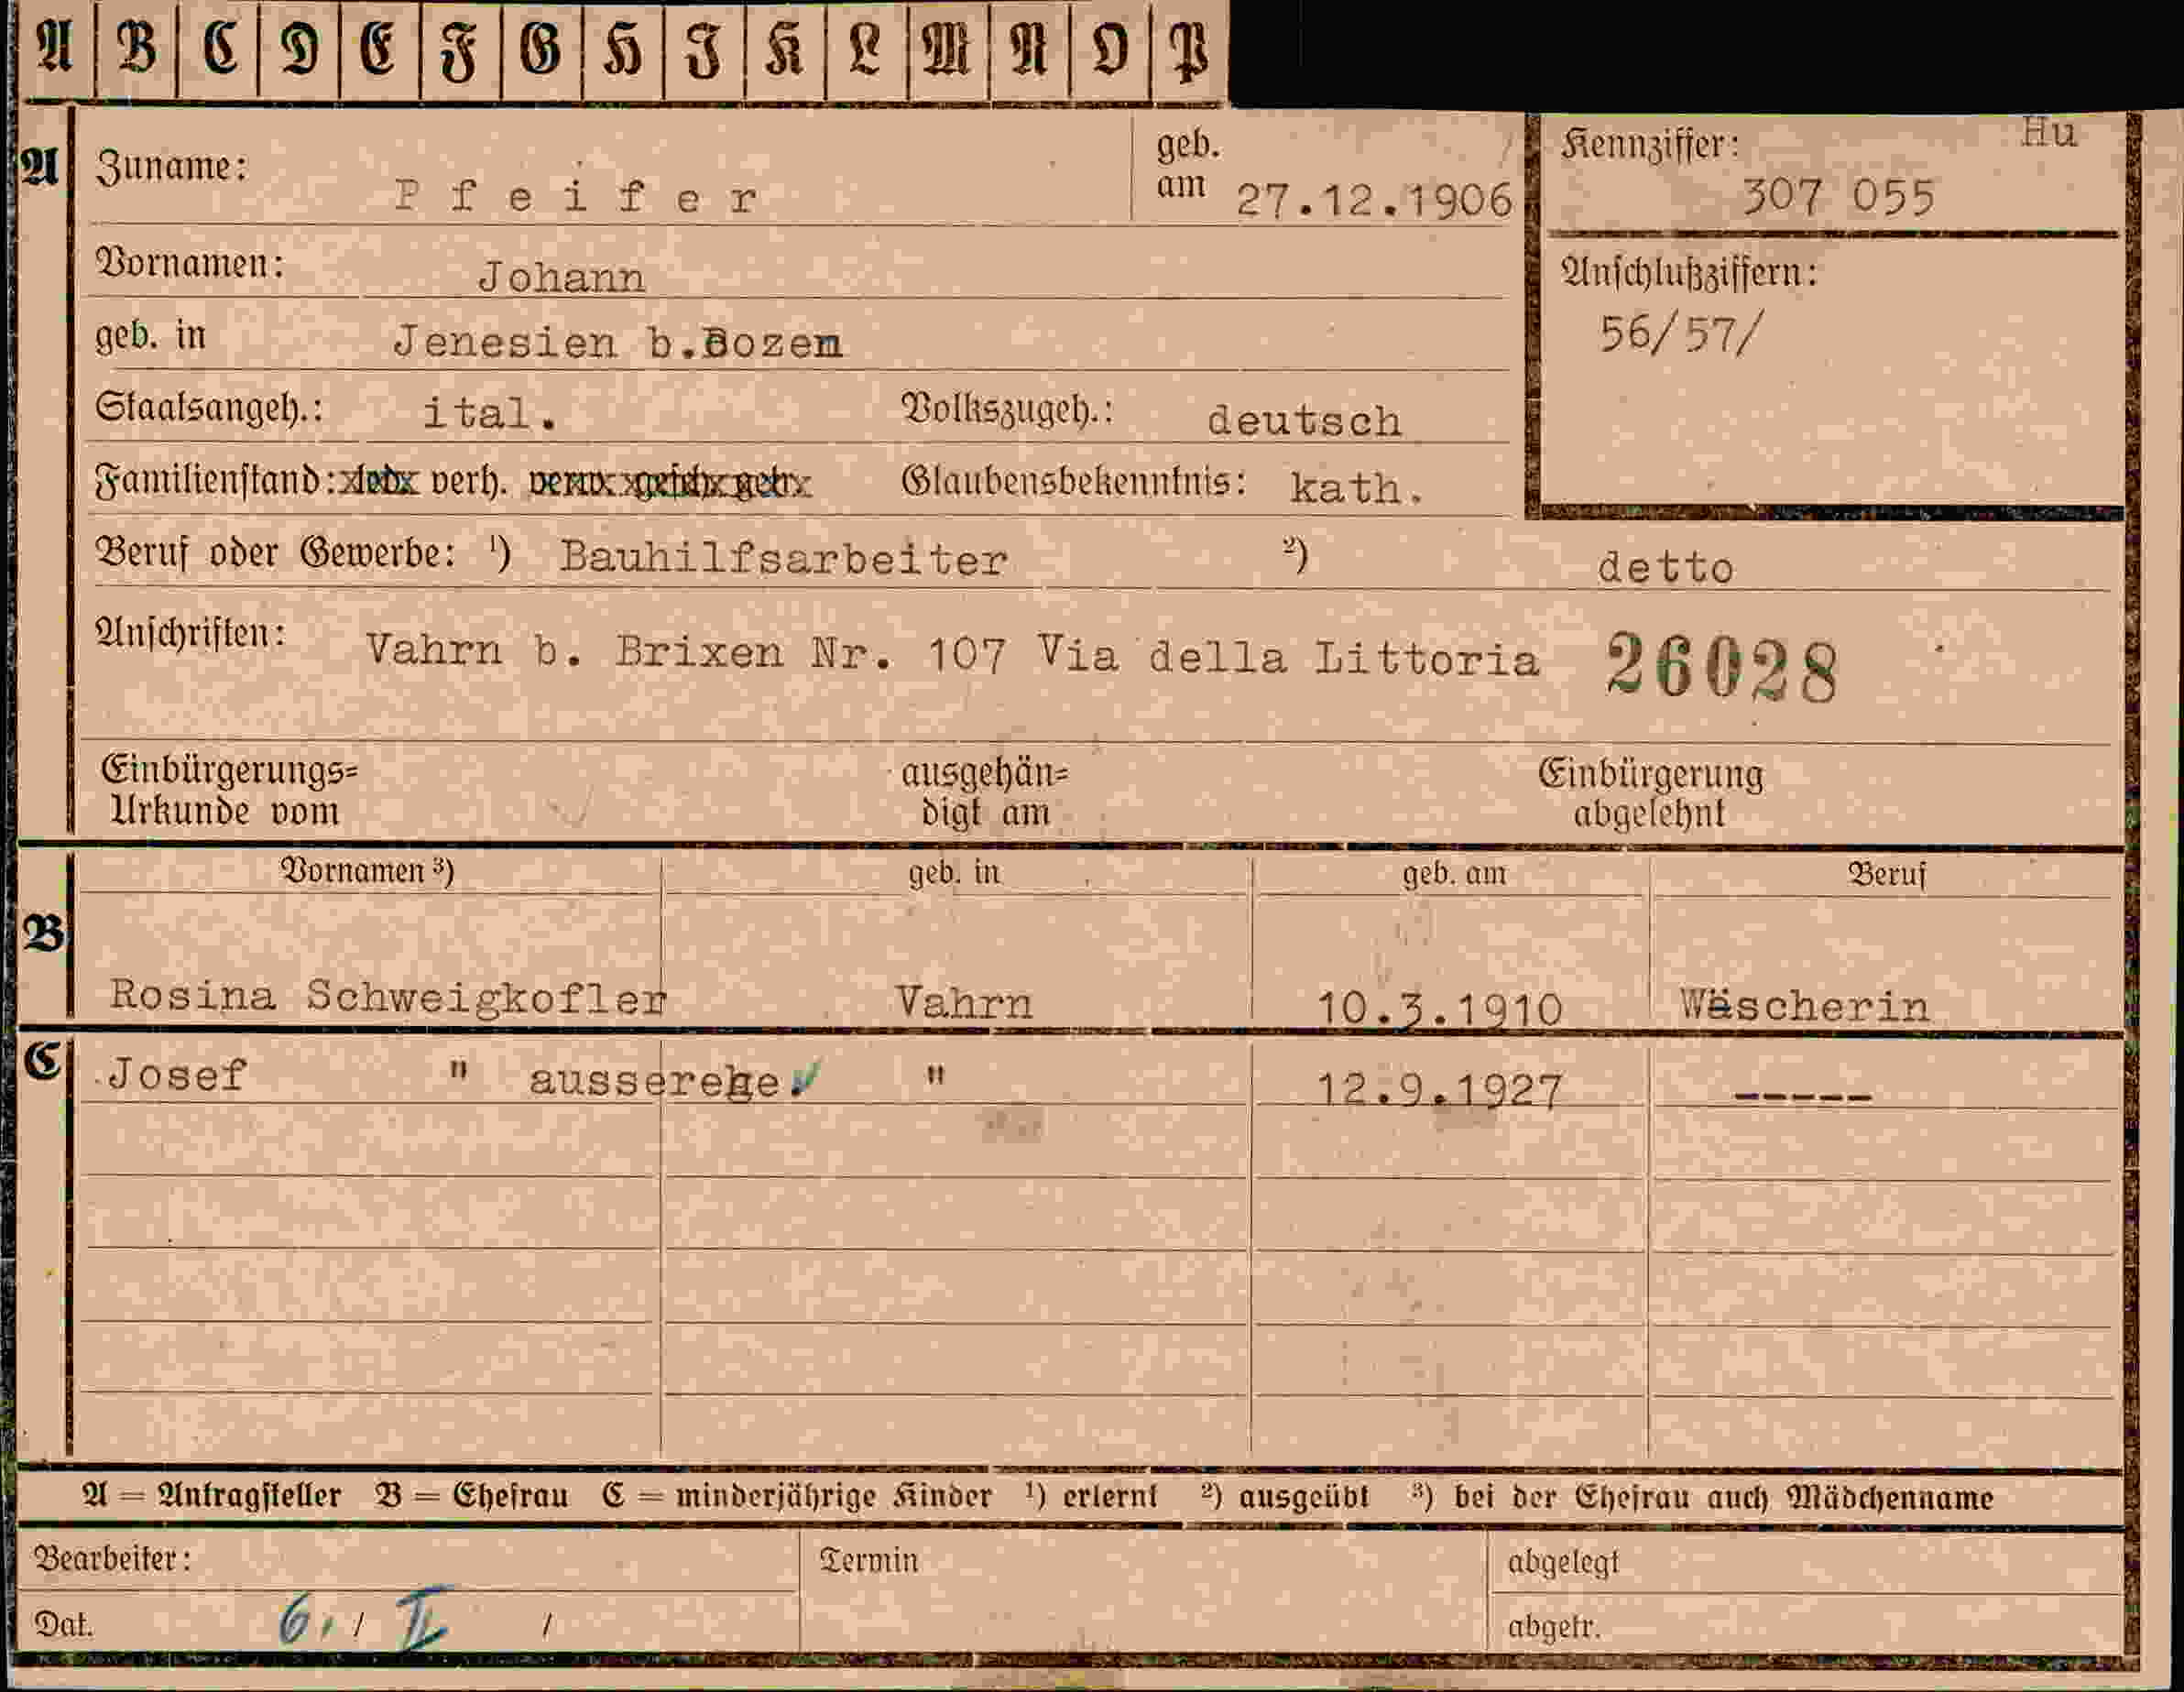 A B C D E F G H I K L M N O P
Hu
A Zuname: Pfeifer geb. am 27.12.1906 Kennziffer: 307 055
Vornamen: Johann Anschlußziffern:
geb. in Jenesien b.Bozen 56/57/
Staatsangeh.: ital. Volkszugeh.: deutsch
Familienstand: led. verh. verw. gesch. getr. Glaubensbekenntnis: kath.
Beruf oder Gewerbe: ¹) Bauhilfsarbeiter ²) detto
Anschriften: Vahrn b. Brixen Nr. 107 Via della Littoria 26028
Einbürgerungs= ausgehän= Einbürgerung
Urkunde vom digt am abgelehnt
Vornamen ³) geb. in geb. am Beruf
B
Rosina Schweigkofler Vahrn 10.3.1910 Wäscherin
C Josef " ausserehe. " 12.9.1927 -----
A = Antragsteller B = Ehefrau C = minderjährige Kinder ¹) erlernt ²) ausgeübt ³) bei der Ehefrau auch Mädchenname
Bearbeiter: Termin abgelegt
Dat. 6. / II / abgetr.